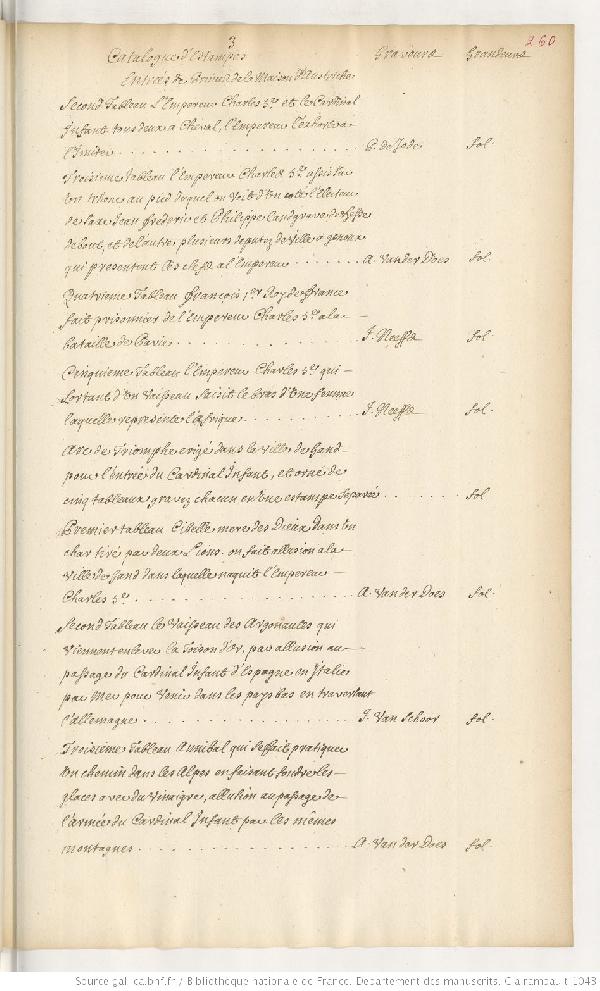 3
260
Catalogue d'Estampes Graveurs Grandeurs
Entrées de Princes de la Maison d'Autriche
Second Tableau L'Empereur Charles 5.e et le Cardinal
Infant tous deux a Cheval, l'Empereur l'exhorte a
l'Imiter . . . . . . . . . . P. de Jode fol.
Troisieme Tableau l'Empereur Charles 5.e assis sur
un trhone au pied duquel on voit d'un coté l'Electeur
de Saxe Jean frederic et Philippe landgrave de Hesse
debout, et de l'autre plusieurs deputez de Ville a genoux
qui presentent les clefs a l'Empereur . . . . . . A. Vander Does fol.
Quatrieme Tableau françois 1.er Roy de france
fait prisonnier de l'Empereur Charles 5.e a la
bataille de Pavie . . . . . . . . . . J. Neeffs fol.
Cinquieme Tableau l'Empereur Charles 5.e qui
sortant d'un Vaisseau saisit le bras d'Une femme
laquelle represente l'Afrique . . . . . . . J. Neeffs fol.
Arc de Triomphe erigé dans la Ville de Gand
pour l'entrée du Cardinal Infant, et orné de
cinq tableaux gravez chacun en une estampe separée . . . . . . fol
Premier tableau Cibelle mere des Dieux dans un
char tiré par deux Lions. on fait allusion a la
Ville de Gand dans laquelle naquit l'Empereur
Charles 5.e . . . . . . . . . . A. Van der Does fol.
Second Tableau le Vaisseau des Argonautes qui
Viennent enlever la Toison d'Or, par allusion au
passage du Cardinal Infant d'Espagne en Italie
par Mer pour Venir dans les pays bas en traversant
l'allemagne . . . . . . . . . . J. Van Schoor fol.
Troisieme Tableau Annibal qui se fait pratiquer
un chemin dans les Alpes en faisant fondre les
glaces avec du Vinaigre, allusion au passage de
l'armée du Cardinal Infant par les mêmes
montagnes . . . . . . . . . . A. Van der Does fol.
Source gallica.bnf.fr / Bibliothèque nationale de France. Département des manuscrits. Clairambault 1048